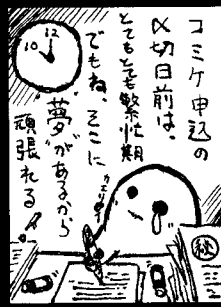 コミケ申込の
〆切日前は、
とてもとても繁忙期
でもね、そこに
"夢"があるから
頑張れる!
カエリタイ
12
10
㊙